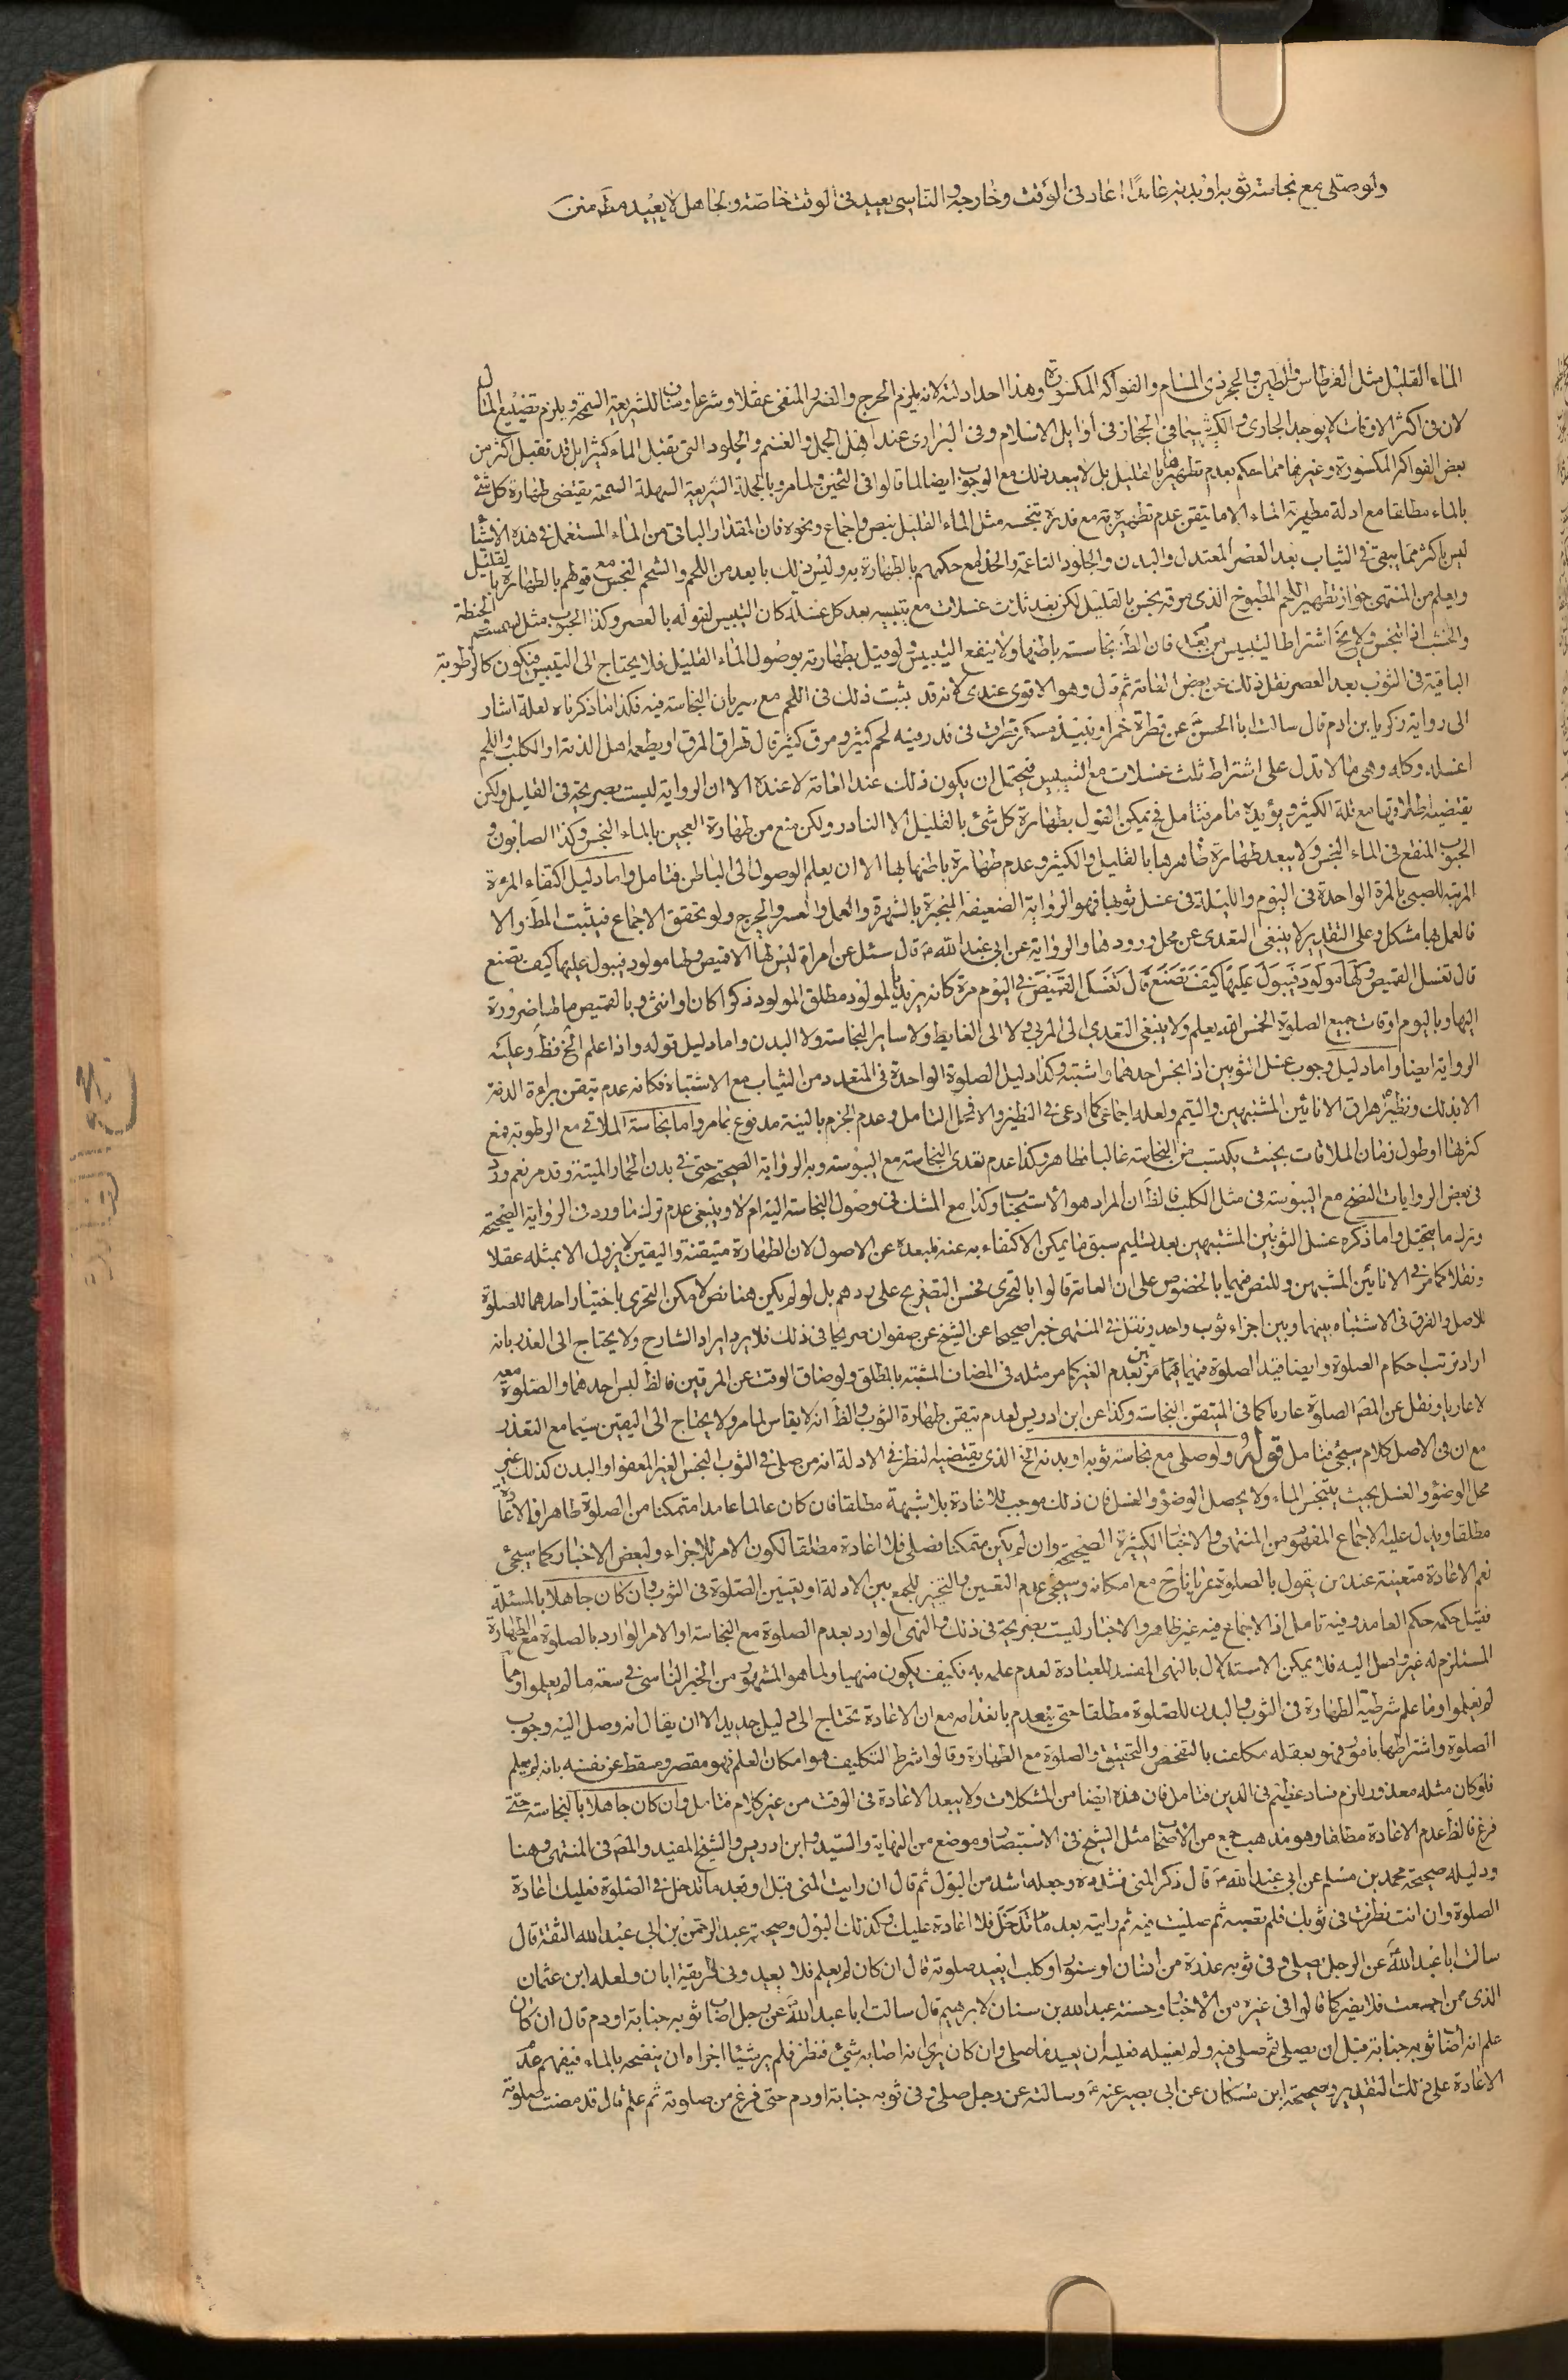 ولو صلى مع نجاسة ثوبه او بدنه عامدا اعاد فى الوقت وخارجه والناسى يعيد فى الوقت خاصة والجاهل لا يعيد مطلقا متن
الماء القليل مثل القرطاس والطين والحجر ذى المسام والفواكه المكسورة وهذا احد ادلته لانه يلزم الحرج والضرر المنفى عقلا وشرعا ومناف للشريعة السمحة ويلزم تضييع المال
لان فى اكثر الاوقات لا يوجد الجارى والكثير سيما فى الحجاز فى أوايل الاسلام وفى البرارى عند اهل الجمل والغنم والجلود التى تقبل الماء كثيرا بل قد تقبل اكثر من
بعض الفواكه المكسورة وغيرها مما حكم بعدم تطهيرها بالقليل بل لا يبعد ذلك مع الوجوب ايضا لما قالوا فى الثخين ولما مر وبالجملة الشريعة السهلة السمحة يقتضى طهارة كل شئ
بالماء مطلقا مع ادلة مطهرية الماء الا ما يتقن عدم تطهيره به مع قدرة تنجسه مثل الماء القليل بنص واجماع ونحوه فان المقدار الباقى من الماء المستعمل فى هذه الاشيا
ليس باكثر مما يبقى فى الثياب بعد العصر المعتدل والبدن والجلود الناعمة والخذ مع حكمهم بالطهارة به وليس ذلك بابعد من اللحم والشحم النجس مع قولهم بالطهارة بالقليل
ويعلم من المنتهى جواز تطهير اللحم المطبوخ الذى مرقه نجس بالقليل لكن بعد ثلاث غسلات مع تيبيسه بعد كل غسلة كان التيبيس لقوله بالعصر وكذا الحبوب مثل السمسم الحنطة
والخشب اذا انتجس ولا يخ اشتراط التيبيس من بعد فان لظ نجاسته باطنها ولا ينفع التيبيس ولو قيل بطهارته بوصول الماء القليل فلا يحتاج الى التيبيس فيكون كالرطوبة
الباقية فى الثوب بعد العصر نقل ذلك عن بعض العامة ثم قال وهو الاقوى عندى لانه قد ثبت ذلك فى اللحم مع سريان النجاسة فيه فكذا ما ذكرناه لعله اشار
الى رواية زكريا بن ادم قال سالت ابا الحسن عن قطرة خمر او نبيذ مسكر قطرت فى قدر فيه لحم كثير ومرق كثير قال تهراق المرق او يطعمه اهل الذمة او الكلب واللحم
اغسله وكله وهى ما لا تدل على اشتراط ثلث غسلات مع التيبيس فيحتمل ان يكون ذلك عند العامة لا عنده الا ان الرواية ليست بصريحة فى القليل ولكن
يقتضيه اطلاقها مع قلة الكثير ويؤيده ما مر فتامل فح يمكن القول بطهارة كل شئ بالقليل الا النادر ولكن منع من طهارة العجين بالماء النجس وكذا الصابون و
الحبوب المنقع فى الماء النجس ولا يبعد طهارة ظاهرها بالقليل والكثير وعدم طهارة باطنها بها الا ان يعلم الوصول الى الباطن فتامل واما دليل اكتفاء المرءة
المربية للصبى بالمرة الواحدة فى اليوم والليلة فى غسل ثوبها فهو الرواية الضعيفة المنجبرة بالشهرة والعمل والعسر والحرج ولو تحقق الاجماع فيثبت المط والا
فالعمل بها مشكل وعلى التقدير لا ينبغى التعدى عن محل ورودها والرواية عن ابى عبد الله ع قال سئل عن امراة ليس لها الا قميص ولها مولود فيبول عليها كيف تصنع
قال تغسل القميص ولها مولود فيبول عليها كيف تصنع قال تغسل القميص فى اليوم مرة كانه يريد بالمولود مطلق المولود ذكرا كان او انثى وبالقميص ما لها ضرورة
اليها وباليوم اوقات جميع الصلوة الخمس الله يعلم ولا ينبغى التعدى الى المربى ولا الى الغايط ولا ساير النجاسة ولا البدن واما دليل قوله واذا علم الخ فظ وعليه
الرواية ايضا واما دليل وجوب غسل الثوبين اذا نجس احدهما واشتبه وكذا دليل الصلوة الواحدة فى المتعدد من الثياب مع الاشتباه فكانه عدم تيقن براءة الذمة
الا بذلك ونظيره هراق الانائين المشتبهين والتيمم ولعله اجماعى كما ادعى فى النظير والا فمحل التامل وعدم الجزم بالنية مدفوع بما مر واما نجاسة الملاقى مع الرطوبة فمع
كثرتها او طول زمان الملاقات بحيث يكتسب من النجاسة غالبا فظاهر وكذا عدم تعدى النجاسة مع اليبوسة وبه الرواية الصحيحة حتى فى بدن الحمار الميتة وقد مر نعم ورد
فى بعض الروايات النضح مع اليبوسة فى مثل الكلب فالظ ان المراد هو الاستحباب وكذا مع الشك فى وصول النجاسة اليه ام لا وينبغى عدم ترك ما ورد فى الرواية الصحيحة
وترك ما يتخيل واما ذكره غسل الثوبين المشتبهين بعد تسليم سبق ما يمكن الاكتفاء به عنه فلبعده عن الاصول لان الطهارة متيقنة واليقين لا يزول الا بمثله عقلا
ونقلا كما مر فى الانائين المشبهين وللنص فيهما بالخصوص على ان العامة قالوا بالتحرى فحسن التصريح على ردهم بل لو لم يكن هنا نص لامكن التحرى باختيار احدهما للصلوة
للاصل والفرق فى الاشتباه بينهما وبين اجزاء ثوب واحد ونقل فى المنتهى خبرا صحيحا عن الشيخ عن صفوان صريحا فى ذلك فلا يرد ايراد الشارح ولا يحتاج الى العذر بانه
اراد ترتب احكام الصلوة وايضا قيد الصلوة فيهما بين بعدم الغير كما مر مثله فى المضاف المشتبه بالمطلق ولو ضاق الوقت عن المرتين فالظ لبس احدهما والصلوة معه
لا عاريا ونقل عن المصـ الصلوة عاريا كما فى المتيقن النجاسة وكذا عن ابن ادريس لعدم تيقن طهارة الثوب والظ انه لا يقاس لما مر ولا يحتاج الى اليقين سيما مع التعذر
مع ان فى الاصل كلام سيجئ فتامل قوله ولو صلى مع نجاسة ثوبه او بدنه الخ الذى يقتضيه النظر فى الادلة انه من صلى فى الثوب النجس الغير المعفو او البدن كذلك غير
محل الوضؤ والغسل بحيث يتنجس الماء ولا يحصل الوضؤ والغسل فان ذلك موجب للاعادة بلا شبهة مطلقا فان كان عالما عامدا متمكنا من الصلوة طاهرا فالاعادة
مطلقا ويدل عليه الاجماع المفهوم من المنتهى والاخبار الكثيرة الصحيحة وان لم يكن متمكنا فصلى فلا اعادة مطلقا لكون الامر للاجزاء ولبعض الاخبار كما سيجئ
نعم الاعادة متعينة عند من يقول بالصلوة عريانا ح مع امكانه وسيجئ عدم التعيين والتخيير للجمع بين الادلة او تعيين الصلوة فى الثوب وان كان جاهلا بالمسئلة
فقيل حكمه حكم العامد وفيه تامل اذ الاجماع فيه غير ظاهر والاخبار ليست بصريحة فى ذلك والنهى الوارد بعدم الصلوة مع النجاسة او الامر الوارد بالصلوة مع الطهارة
المستلزم له غير واصل اليه فلا يمكن الاستدلال بالنهى المفسد للعبادة لعدم علمه به فكيف يكون منهيا ولما هو المشهور من الخبر الناس فى سعة ما لم يعلموا وما
لم يعلموا وما علم شرطية الطهارة فى الثوب والبدن للصلوة مطلقا حتى ينعدم بانعدامه مع ان الاعادة تحتاج الى دليل جديد الا ان يقال انه وصل اليه وجوب
الصلوة واشتراطها بامور فهو بعقله مكلف بالتفحص والتحقيق والصلوة مع الطهارة وقالوا شرط التكليف هو امكان العلم فهو مقصر ومسقط عن نفسه بانه لم يعلم
فلو كان مثله معذورا يلزم فساد عظيم فى الدين فتامل فان هذه ايضا من المشكلات ولا يبعد الاعادة فى الوقت من غير كلام فتامل وان كان جاهلا بالنجاسة حتى
فرغ فالظ عدم الاعادة مطلقا وهو مذهب جمع من الاصحاب مثل الشيخ فى الاستبصار وموضع من النهاية والسيد وابن ادريس والشيخ المفيد والمصـ فى المنتهى وهنا
ودليله صحيحة محمد بن مسلم عن ابى عبد الله ع قال ذكر المنى فشدده وجعله اشد من البول ثم قال ان رايت المنى قبل او بعد ما تدخل فى الصلوة فعليك اعادة
الصلوة وان انت نظرت فى ثوبك فلم تصبه ثم صليت فيه ثم رايته بعد ما تدخل فلا اعادة عليك وكذلك البول وصحيحة عبد الرحمن بن ابى عبد الله الثقة قال
سالت ابا عبد الله ع عن الرجل يصلى وفى ثوبه عذرة من انسان او سنور او كلب ايعيد صلوته قال ان كان لم يعلم فلا يعيد وفى طريقه ابان ولعله ابن عثمان
الذى ممن اجمعت فلا يضر كما قالوا فى غيره من الاخبار وحسنة عبد الله بن سنان لابرهيم قال سالت ابا عبد الله ع عن رجل اصاب ثوبه جنابة او دم قال ان كان
علم انه اصاب ثوبه جنابة قبل ان يصلى ثم صلى فيه ولم يغسله فعليه ان يعيد ما صلى وان كان يرى انه اصابه شئ فنظر فلم ير شيئا اجزاه ان ينضحه بالماء فيفهم عدم
الاعادة على ذلك التقدير وصحيحة ابن مسكان عن ابى بصير عنه ع وسالته عن رجل صلى وفى ثوبه جنابة او دم حتى فرغ من صلوته ثم علم قال قد مضت صلوته